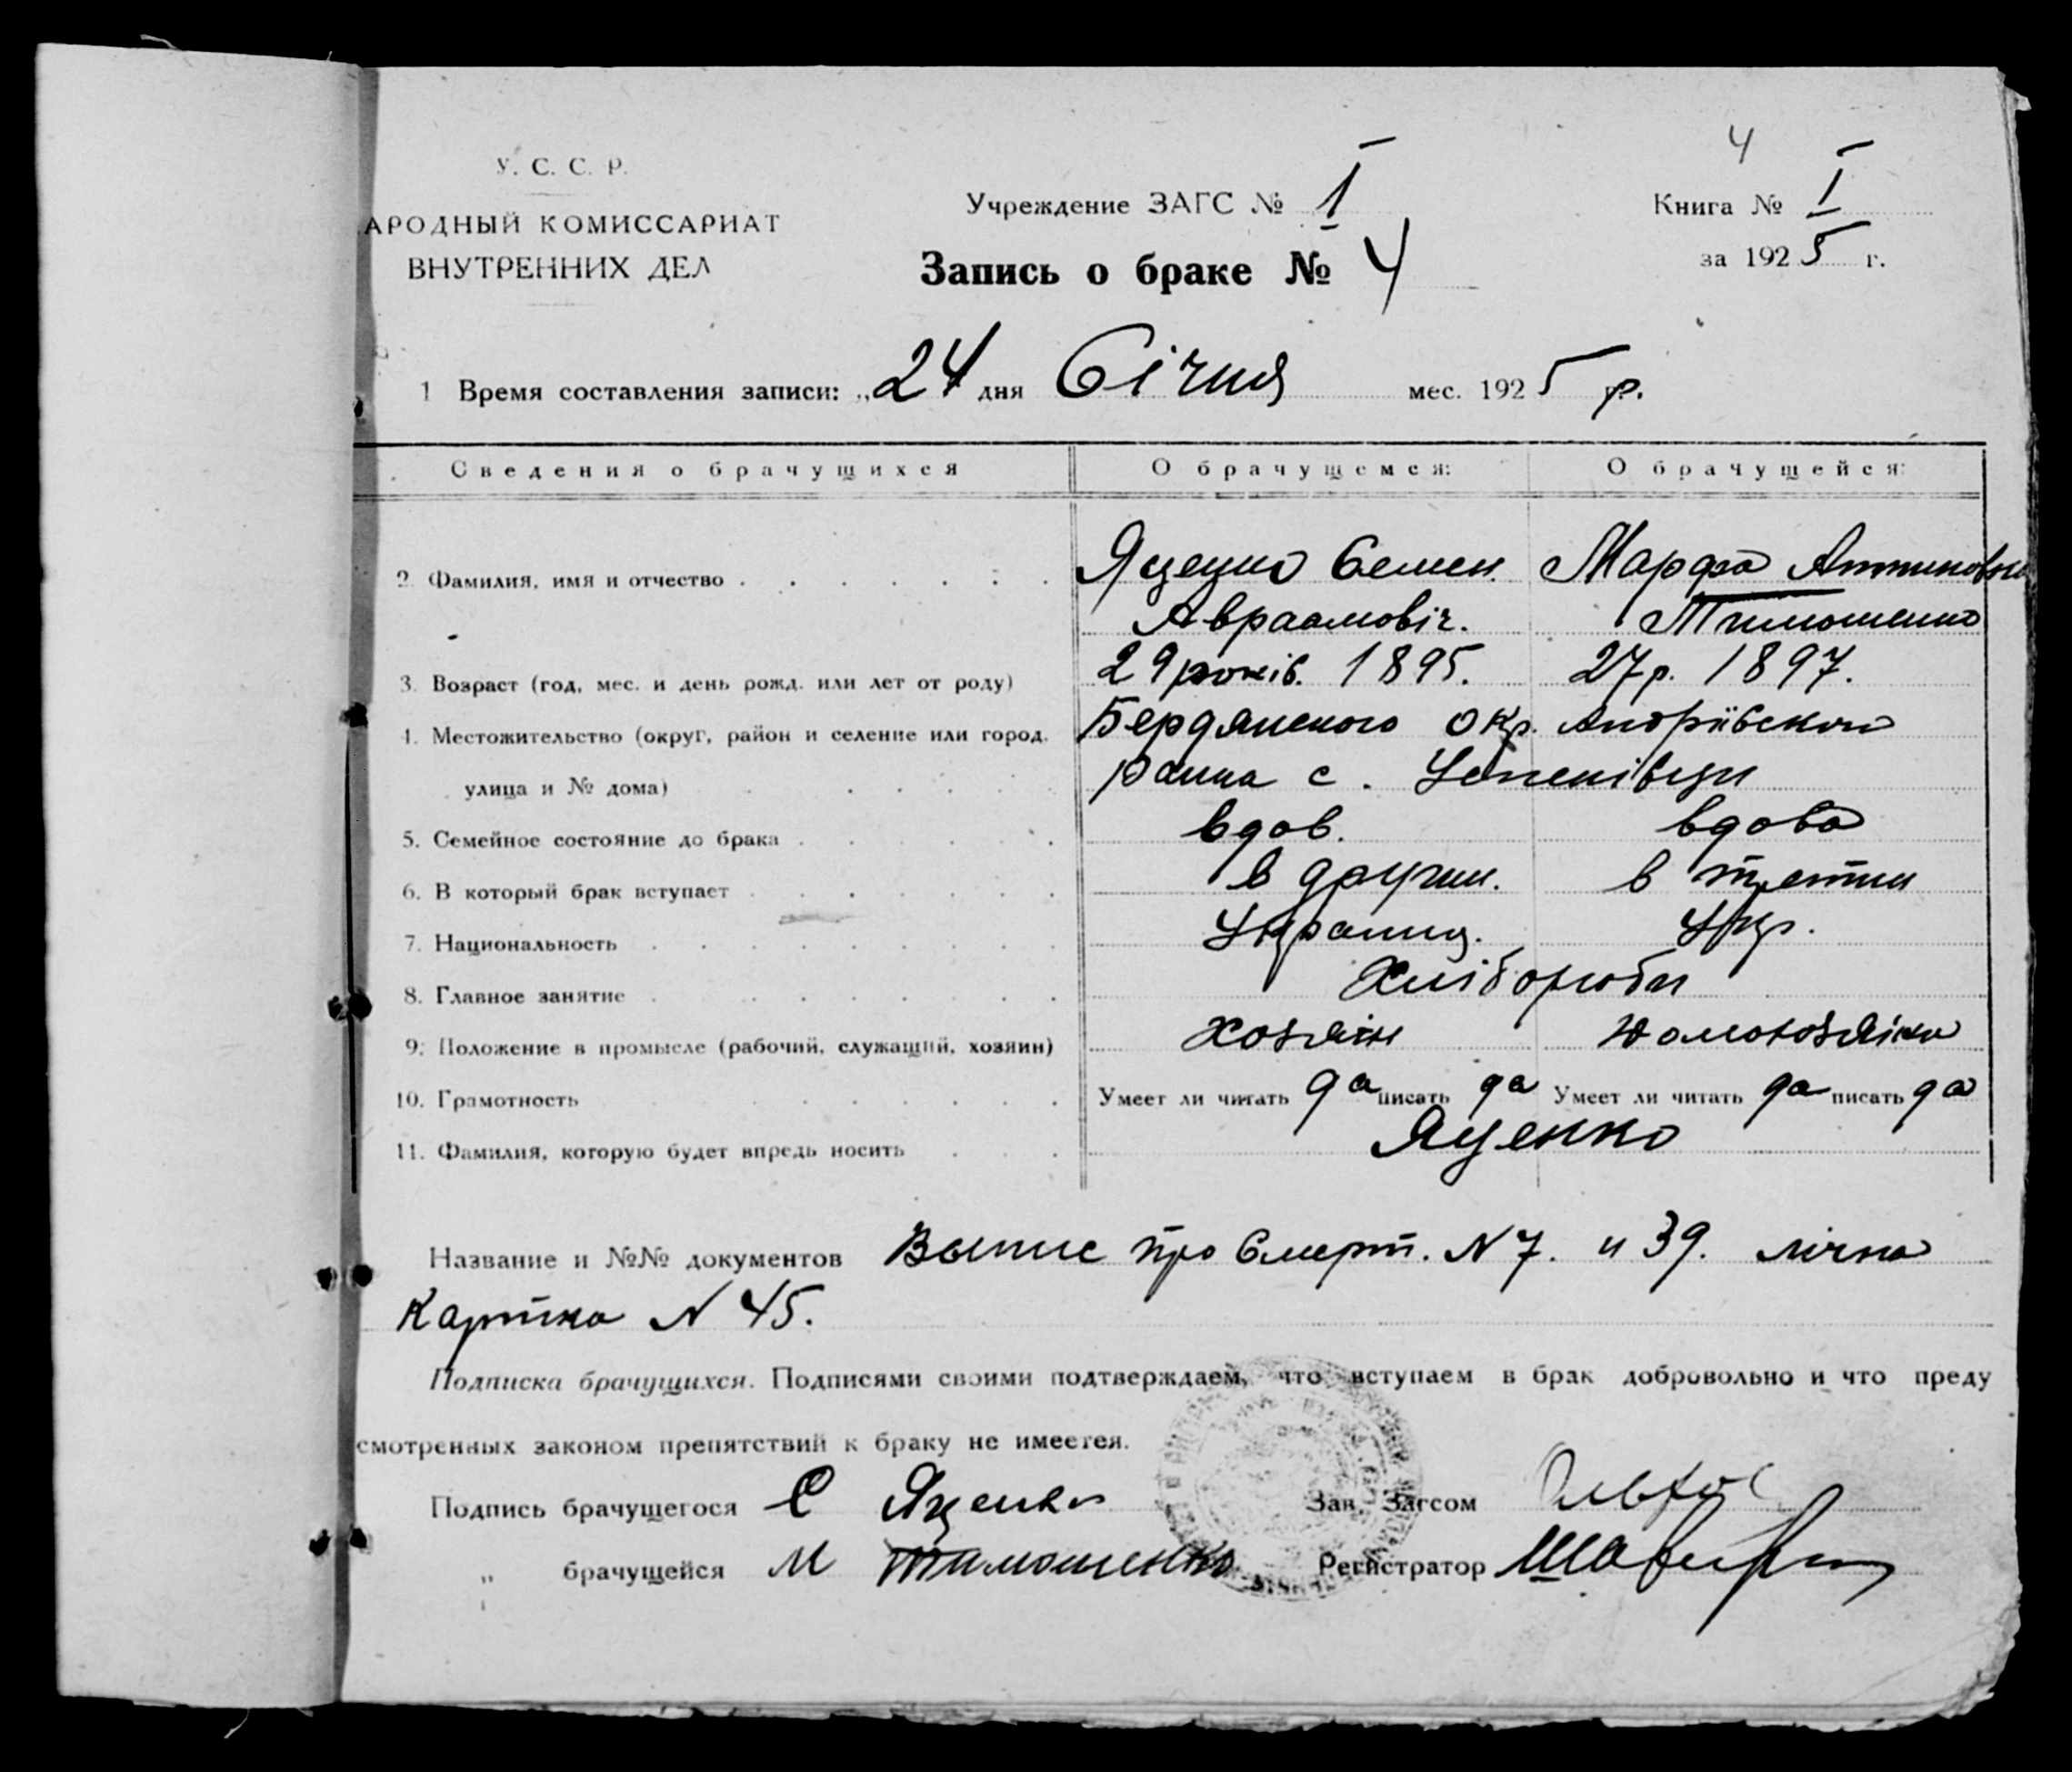 4
У. С. С. Р.
АРОДНЫЙ КОМИССАРИАТ
ВНУТРЕННИХ ДЕЛ
Учреждение ЗАГС № I
Книга № I
за 1925 г.
Запись о браке № 4
1 Время составления записи: „24 дня Січня мес. 1925 р.
Сведения о брачущихся О брачущемся: О брачущейся:
2. Фамилия, имя и отчество Яценко Семен Марфа
Авраамовіч. Тимошенко
3. Возраст (год, мес. и день рожд. или лет от роду) 29 років. 1895. 27 р. 1897.
4. Местожительство (округ, район и селение или город, Бердянского окр. Андріівского
улица и № дома) раина с.
5. Семейное состояние до брака вдов. вдова
6. В который брак вступает в другий. в третий
7. Национальность Українц. Укр.
8. Главное занятие Хлібороби
9. Положение в промысле (рабочий, служащий, хозяин) Хозяін домохозяйка
10. Грамотность Умеет ли читать да писать да Умеет ли читать да писать да
11. Фамилия, которую будет впредь носить Яценко
Название и №№ документов Выпис про Смерт. N 7. и 39. лічна
Картка N 45.
Подписка брачущихся. Подписями своими подтверждаем, что вступаем в брак добровольно и что преду
смотренных законом препятствий к браку не имеется.
Подпись брачущегося С Яценко Зав. Загсом
„ брачущейся М Тимошенко Регистратор